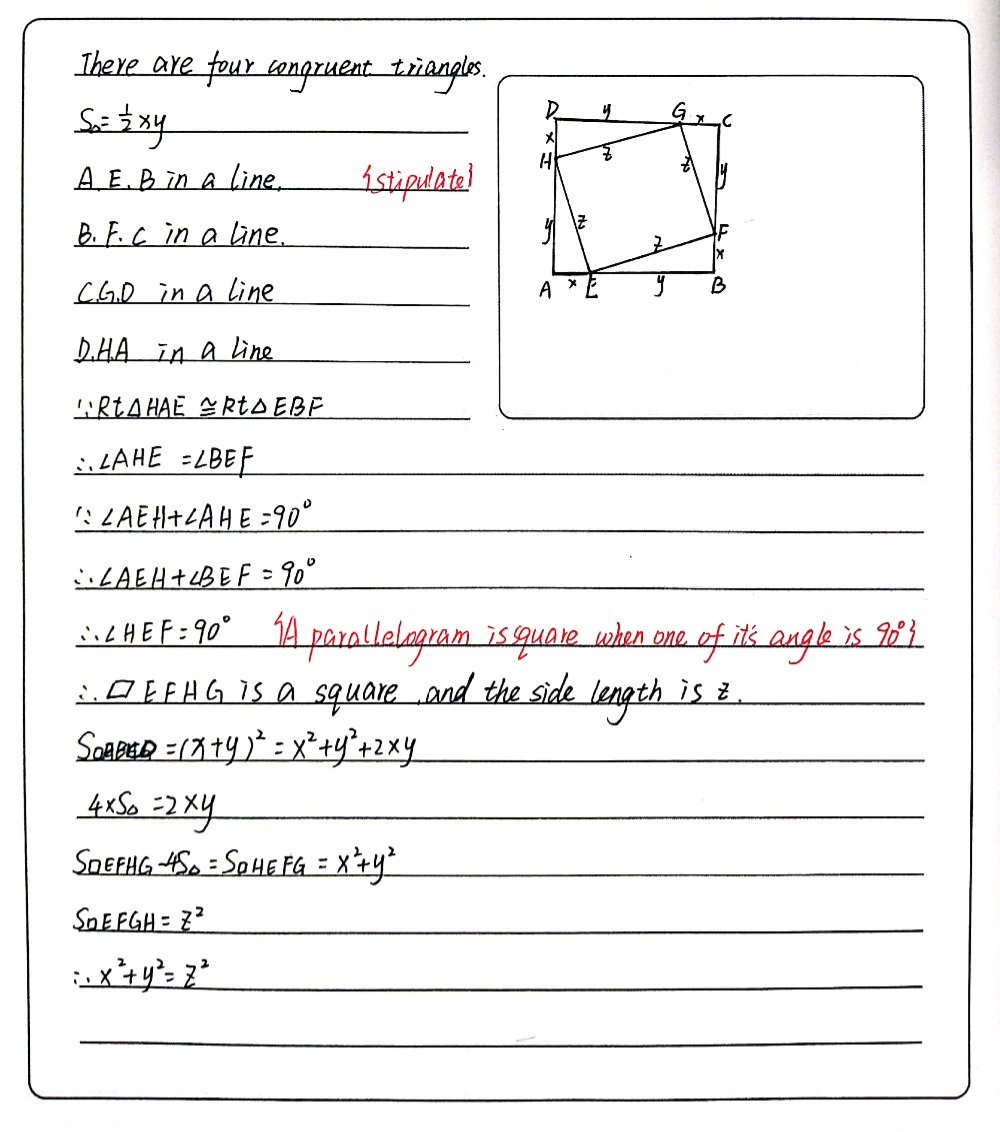 There are four congruent triangles.
S△ = 1/2 xy
A. E. B in a line. {stipulate}
B. F. C in a line.
C.G.D in a line
D.H.A in a line
∵ Rt△HAE ≅ Rt△EBF
∴ ∠AHE = ∠BEF
∵ ∠AEH + ∠AHE = 90°
∴ ∠AEH + ∠BEF = 90°
∴ ∠HEF = 90° {A parallelogram is square when one of it's angle is 90°}
∴ ▱EFHG is a square, and the side length is z.
S□ABCD = (x+y)² = x²+y²+2xy
4×S△ = 2xy
S□EFHG - 4S△ = S□HEFG = x²+y²
S□EFGH = z²
∴ x²+y² = z²
D y G x C
x
H z z y
y z z F
x
A x E y B